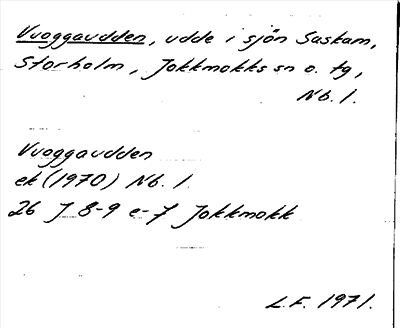 Vuoggaudden, udde i sjön Saskam,
Storholm, Jokkmokks sn o. tg,
Nb. 1.
Vuoggaudden
ek (1970) Nb. 1
26 J 8-9 e-7 Jokkmokk
L.F. 1971.